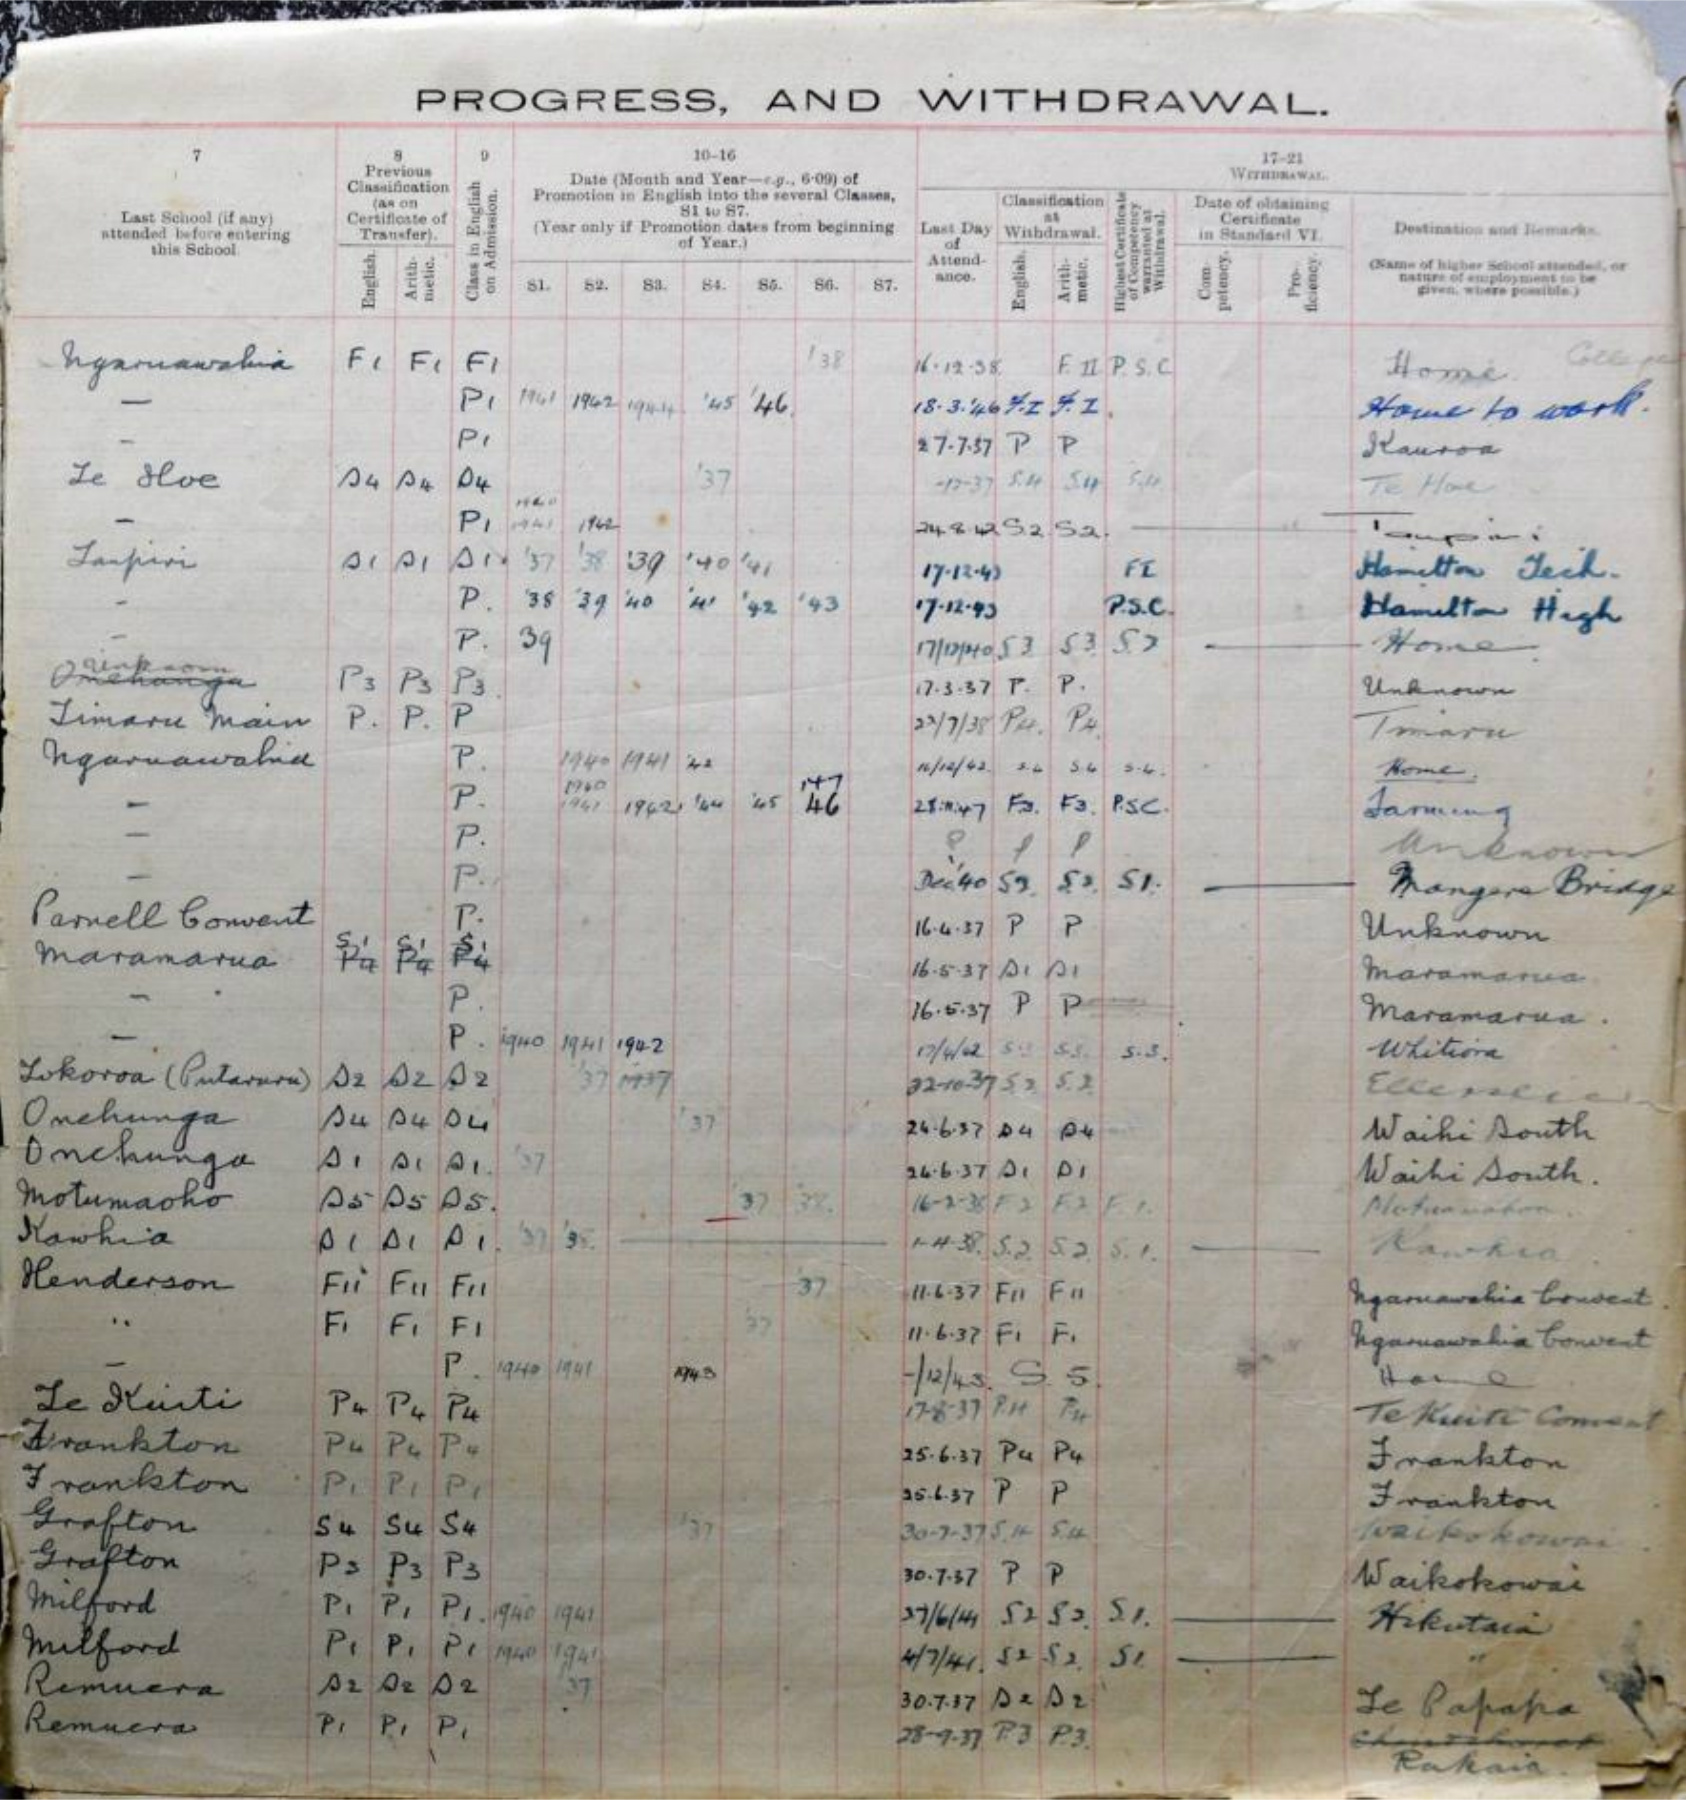 PROGRESS, AND WITHDRAWAL.
7 8 9 10–16 17–21
Last School (if any) attended before entering this School.
Previous Classification (as on Certificate of Transfer).
English. Arithmetic.
Class in English on Admission.
Date (Month and Year—e.g., 6·09) of Promotion in English into the several Classes, S1 to S7.
(Year only if Promotion dates from beginning of Year.)
S1. S2. S3. S4. S5. S6. S7.
WITHDRAWAL.
Last Day of Attendance.
Classification at Withdrawal.
English. Arithmetic.
Highest Certificate of Competency warranted at Withdrawal.
Date of obtaining Certificate in Standard VI.
Competency. Proficiency.
Destination and Remarks.
(Name of higher School attended, or nature of employment to be given, where possible.)
Ngaruawahia F1 F1 F1 '38 16-12-38 F. II P.S.C Home College
— P1 1941 1942 1944 '45 '46 18.3.'46 F.I F.I. Home to work.
– P1 27.7.37 P P Kauroa
Te Hoe S4 S4 S4 '37 -12-37 S.4 S.4 S.4. Te Hoe
– P1 1940 1941 1942 24.8.42 S.2 S2. — Taupiri
Taupiri S1 S1 S1. '37 '38 '39 '40 '41 17.12.43 FI Hamilton Tech.
– P. '38 '39 '40 '41 '42 '43 17.12.43 P.S.C. Hamilton High
– P. 39 17/12/40 S3 S3. — Home
Unknown Onehunga P3 P3 P3. 17.3.37 P. P. Unknown
Timaru Main P. P. P 22/7/38 P4. P4. Timaru
Ngaruawahia P. 1940 1941 '42 S.4 S4 S.4. Home.
– P. 1940 1941 1942 '44 '45 '47 46 28.11.47 F2. F2. P.S.C. Farming
– P. ? P P Unknown
– P. Dec '40 S2. S2. S1. — Mangere Bridge
Parnell Convent P. 16.4.37 P P Unknown
Maramarua S1 P4 S1 P4 S1 P4 16.5.37 S1 S1 Maramarua
– P. 16.5.37 P P Maramarua.
– P. 1940 1941 1942 17/4/42 S.3 S.3. S.3. Whitiora
Tokoroa (Putaruru) S2 S2 S2 '37 1937 22-10-37 S.2 S.2 Ellerslie
Onehunga S4 S4 S4 '37 24.6.37 S4 S4 Waihi South
Onehunga S1 S1 S1. '37 24.6.37 S1 S1 Waihi South.
Motumaoho S5 S5 S5. '37 '38. 16-2-38 F2 F.2 F.1. Motumaoho.
Kawhia S1 S1 S1. '37 '38 — 1-4-38. S.2. S.2. S.1. — Kawhia
Henderson F11 F11 F11 '37 11.6.37 F11 F11 Ngaruawahia Convent.
" F1 F1 F1 '37 11.6.37 F1 F1 Ngaruawahia Convent
– P. 1940 1941 1943 -/12/43. S. 5. Home
Te Kuiti P4 P4 P4 17-8-37 P.4 P4 Te Kuiti Convent
Frankton P4 P4 P4 25.6.37 P4 P4 Frankton
Frankton P1 P1 P1 25.6.37 P P Frankton
Grafton S4 S4 S4 '37 30-7-37 S.4 S.4 Waikokowai.
Grafton P3 P3 P3 30.7.37 P P Waikokowai
Milford P1 P1 P1. 1940 1941 27/6/41 S2 S2. S.1. — Hikutaia
Milford P1 P1 P1 1940 1941 4/7/41. S2 S2. S1. — "
Remuera S2 S2 S2 '37 30.7.37 S2 S2 Te Papapa
Remuera P1 P1 P1 28-9-37 P.3 P.3.
Rakaia.